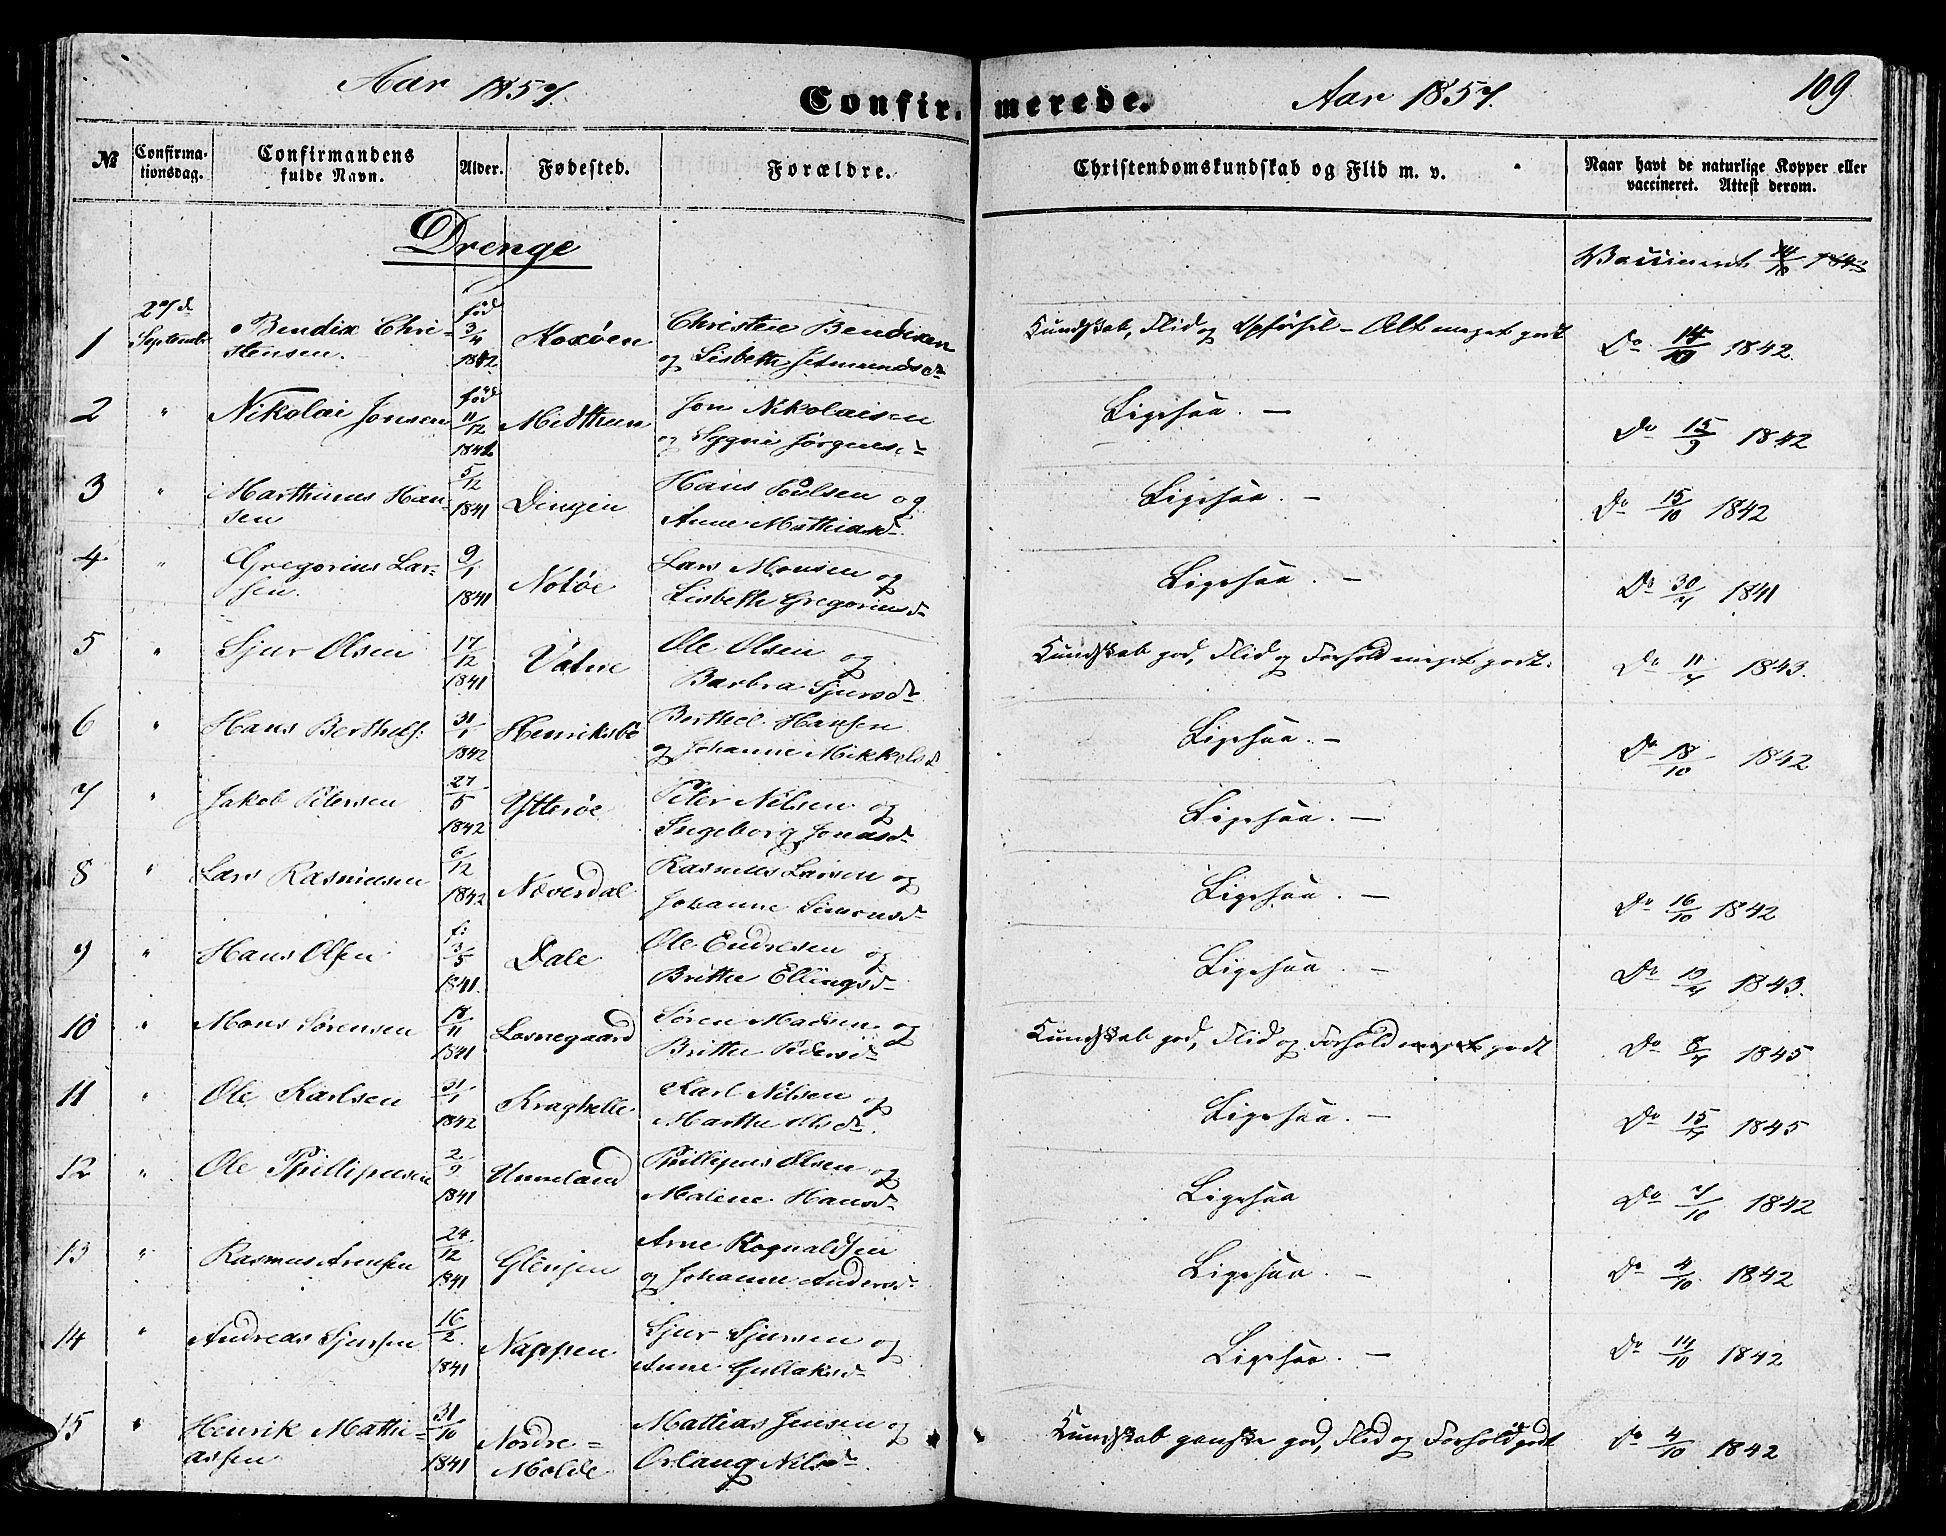 Aar 1857.
Confirmerede.
Aar 1857.
109
№
Confirmationsdag.
Confirmandens fulde Navn.
Alder.
Fødested.
Forældre.
Christendomskundskab og Flid m. v.
Naar havt de naturlige Kopper eller vaccineret. Attest derom.
Drenge
Vaccineret
1 27de Septembr Bendix Christensen. fød 3/4 1842 Christen Bendixen og Lisbeth Kundskab, Flid og Opførsel - Alt meget godt Do 1842.
2 " Nikolai Jonsen fød 11/12 1841 Midthun Jon Nikolaisen og Sygni Jørgensd. Ligesaa. - Do 15/9 1842
3 " Marthinus Hansen 5/12 1841 Dingen Hans Poulsen og Anne Mathiasd. Ligesaa. - Do 15/10 1842
4 " Gregorius Larsen. 9/1 1841 Notøe Lars Monsen og Lisbeth Gregoriusd. Ligesaa. - Do 30/7 1841
5 " Sjur Olsen 17/12 1841 Ole Olsen og Barbra Sjursd. Kundskab god, Flid og Forhold meget godt. Do 11/7 1843.
6 " Hans Berthels: 31/1 1842 Henriksbø Berthel Hansen og Johanne Mikkelsd. Ligesaa. - Do 18/10 1842
7 " Jakob Petersen 27/5 1842 Ytterøe Peter Nilsen og Ingeborg Jonasd. Ligesaa. -
8 " Lars Rasmusen 6/12 1842 Næverdal Rasmus Larsen og Johanne Simonsd. Ligesaa. - Do 16/10 1842
9 " Hans Olsen f: 3/5 1841. Dale Ole Endresen og Brithe Ellingsd. Ligesaa. - Do 1843.
10 " Mons Sørensen 18/11 1841 Losnegaard Søren Madsen og Brithe Pedersd. Kundskab god, Flid og Forhold meget godt Do 8/7 1845
11 " Ole Karlsen 31/1 1842 Kraghelle Karl Nilsen og Marthe Olsd. Ligesaa. - Do 15/7 1845
12 " Ole Phillipusen 2/9 1841 Unneland Phillipus Olsen og Malene Hansd. Ligesaa Do 7/10 1842
13 " Rasmus Arensen 24/12 1841 Glenjen Arne Rognaldsen og Johanne Andersd. Ligesaa. - Do 4/10 1842
14 " Andreas Sjursen 16/2 1841 Nappen Sjur Sjursen og Anne Gullaksd. Ligesaa. - Do 14/10 1842
15 " Henrik Mathiassen 31/10 1841 Nordre= Molde Mattias Jensen og Nilsd. Kundskab ganske god, Flid og Forhold godt Do 4/10 1842